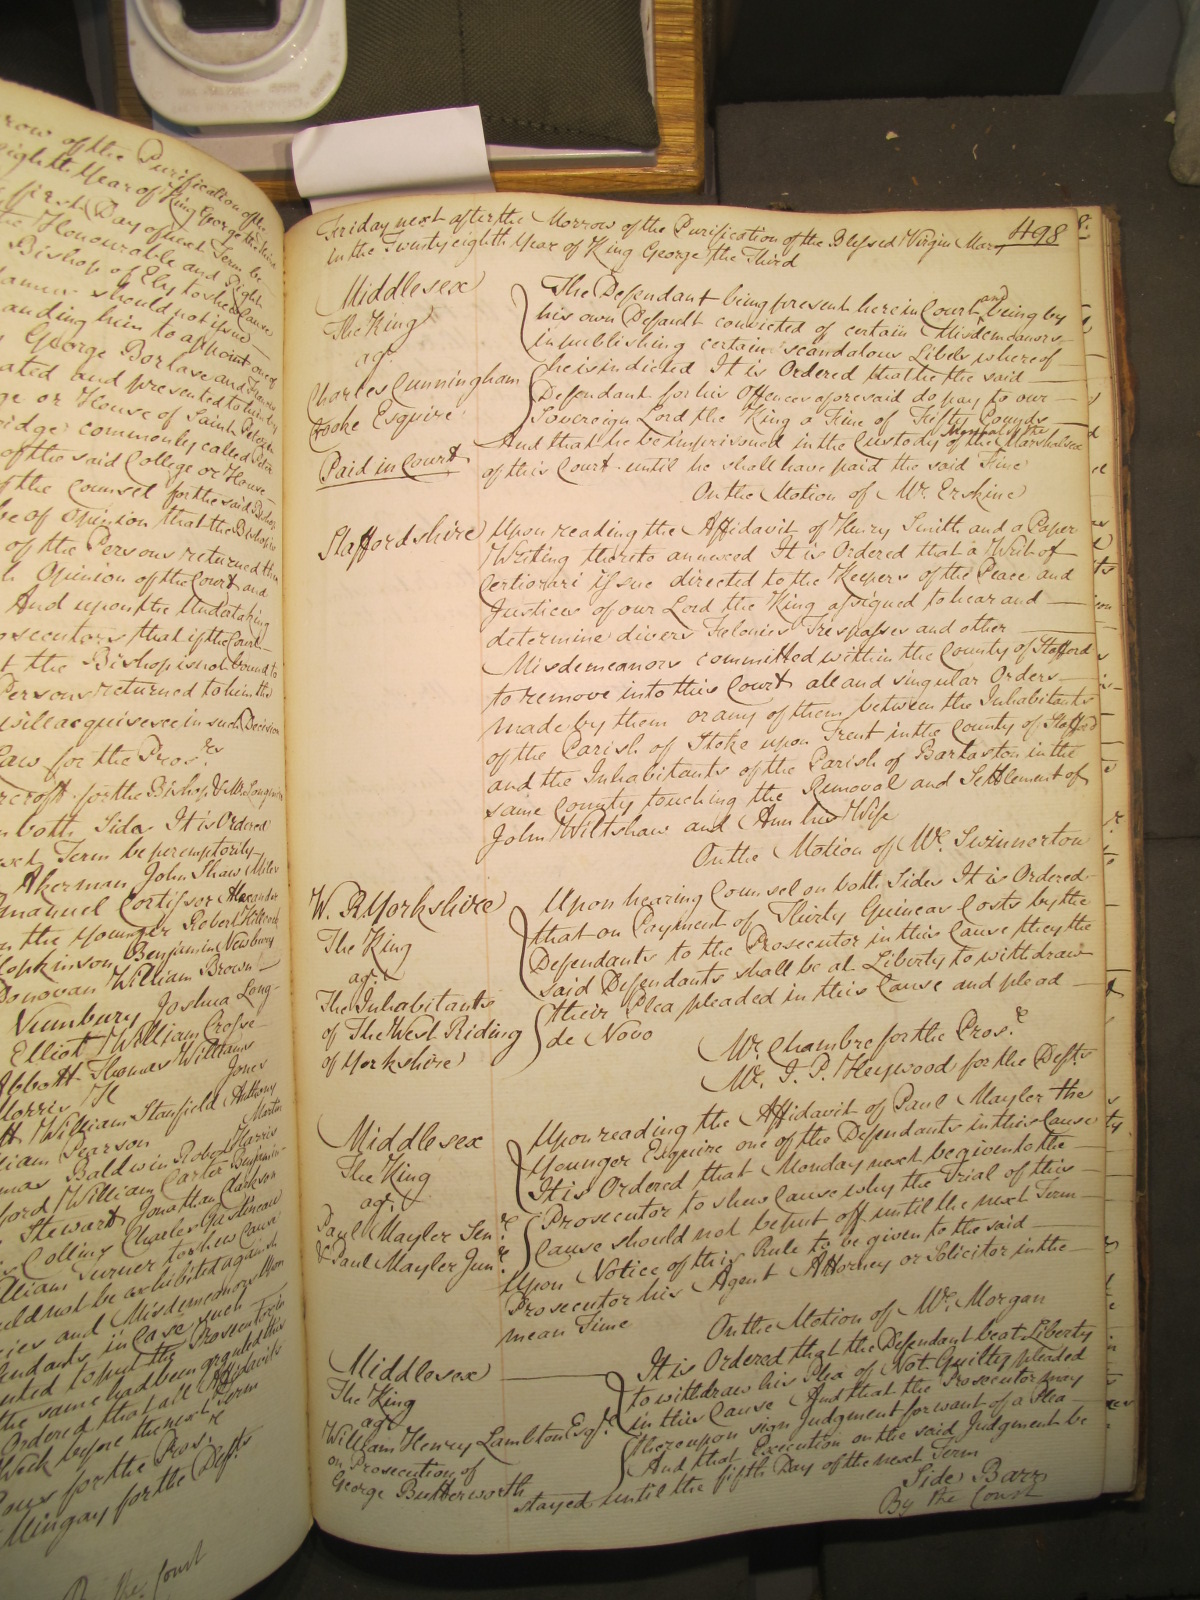 row of the Purification of the
eighth Year of King George the third
first Day of next Term be
the Honourable and Right
Bishop of Ely to shew Cause
damus should not issue
anding him to appoint one of
George Borlase and Francis
ated and presented to him by
ge or House of Saint Peter in
bridge commonly called Peter
of the said College or House
of the Counsel for the said Bishop
be of Opinion that the Bishop is
of the Persons returned to him
Opinion of the Court and
And upon the Undertaking
osecutors that if the Court
t the Bishop is not bound to
Persons returned to him the
will acquiesce in such Decision
Law for the Pros.rs
croft for the Bishop & Mr.
both Sides It is Ordered
next Term be peremptorily
Akerman John Shaw Miles
manuel Cortissor Alexander
the Younger Robert
opkinson Benjamin Newbury
Donovan William Brown
Numbury Joshua Long
Elliot William Crosse
Abbott Thomas Williams
Morris Jones
William Stanfield Anthony
liam Pearson Martin
mas Baldwin Robert Harris
ford William Carter Benjamin
Stewart Jonathan Clarkson
Colling Charles Gastineau
illiam Turner to shew Cause
uld not be exhibited against
ies and Misdemeanors Upon
endants in Case such
nted to put the Prosecutor to
the same had been granted this
Ordered that all Affidavits
Week before the next Term
ous for the Pros.r
Mingay for the Def.ts
By the Court
Friday next after the Morrow of the Purification of the Blessed Virgin Mary 498
in the Twenty eighth Year of King George the Third
Middlesex
The King
ag.t
Charles Cunningham
Cooke Esquire
Paid in Court
The Defendant being present here in Court and being by
his own Default convicted of certain Misdemeanors
in publishing certain scandalous Libels whereof
he is indicted It is Ordered that he the said
Defendant for his Offences aforesaid do pay to our
Sovereign Lord the King a Fine of Fifty Pounds
And that he be imprisoned in the Custody of the Marshal of the Marshalsea
of this Court until he shall have paid the said Fine
On the Motion of Mr. Erskine
Staffordshire
Upon reading the Affidavit of Henry Smith and a Paper
Writing thereto annexed It is Ordered that a Writ of
Certiorari issue directed to the Keepers of the Peace and
Justices of our Lord the King assigned to hear and
determine divers Felonies Trespasses and other
Misdemeanors committed within the County of Stafford
to remove into this Court all and singular Orders
made by them or any of them between the Inhabitants
of the Parish of Stoke upon Trent in the County of Stafford
and the Inhabitants of the Parish of Barlaston in the
same County touching the Removal and Settlement of
John Wiltshaw and Ann his Wife
On the Motion of Mr. Swinnerton
W. R. Yorkshire
The King
ag.t
The Inhabitants
of The West Riding
of Yorkshire
Upon hearing Counsel on both Sides It is Ordered
that on Payment of Thirty Guineas Costs by the
Defendants to the Prosecutor in this Cause they the
said Defendants shall be at Liberty to withdraw
their Plea pleaded in this Cause and plead
de Novo
Mr. Chambre for the Pros.r
Mr. J. P. Heywood for the Def.ts
Middlesex
The King
ag.t
Paul Mayler Sen.r
& Paul Mayler Jun.r
Upon reading the Affidavit of Paul Mayler the
Younger Esquire one of the Defendants in this Cause
It is Ordered that Monday next be given to the
Prosecutor to shew Cause why the Trial of this
Cause should not be put off until the next Term
Upon Notice of this Rule to be given to the said
Prosecutor his Agent Attorney or Solicitor in the
mean Time
On the Motion of Mr. Morgan
Middlesex
The King
ag.t
William Henry Lambton Esq.r
on Prosecution of
George Butterworth
It is Ordered that the Defendant be at Liberty
to withdraw his Plea of Not Guilty pleaded
in this Cause And that the Prosecutor may
thereupon sign Judgment for want of a Plea
And that Execution on the said Judgment be
stayed until the fifth Day of the next Term
Side Barr
By the Court